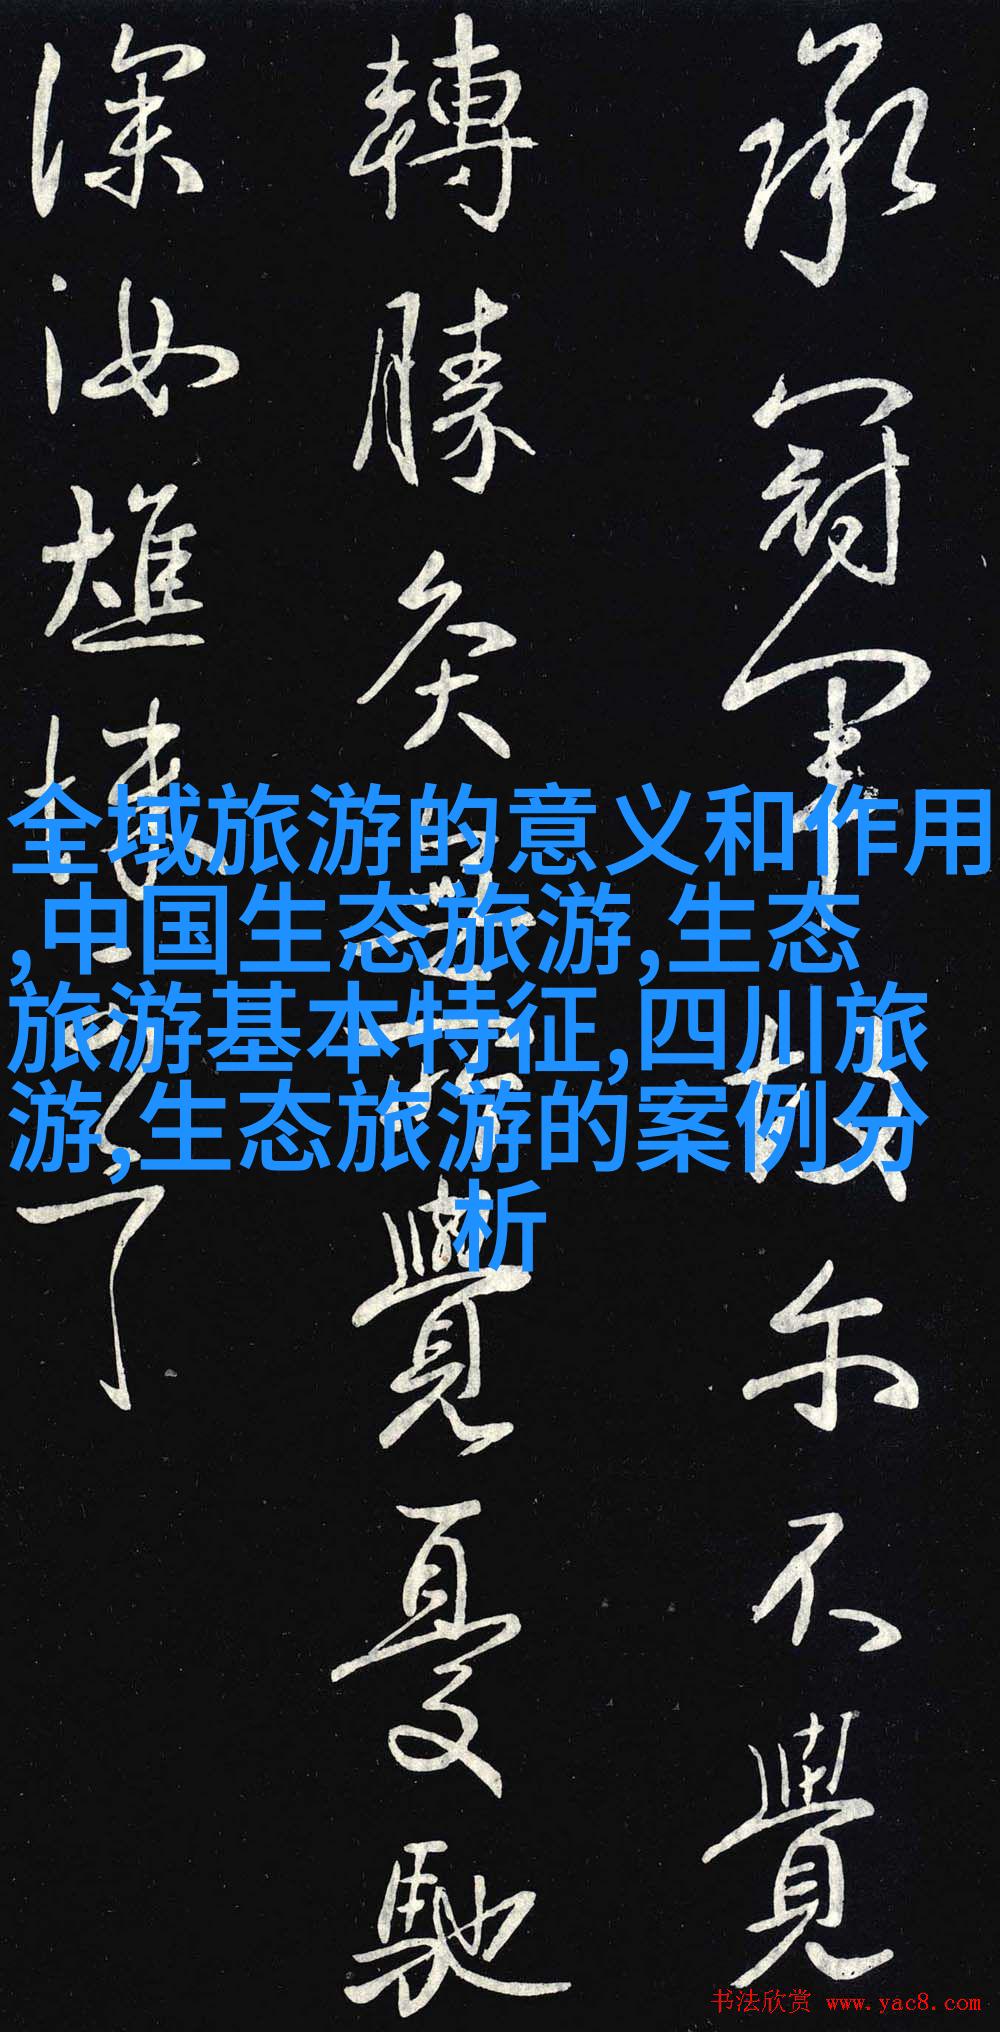 承冠軍故尔不覺
轉勝灸覺憂馳
深汝燋了
全域旅游的意义和作用
,中国生态旅游,生态
旅游基本特征,四川旅
游,生态旅游的案例分
析
书法欣赏 www.yac8.com